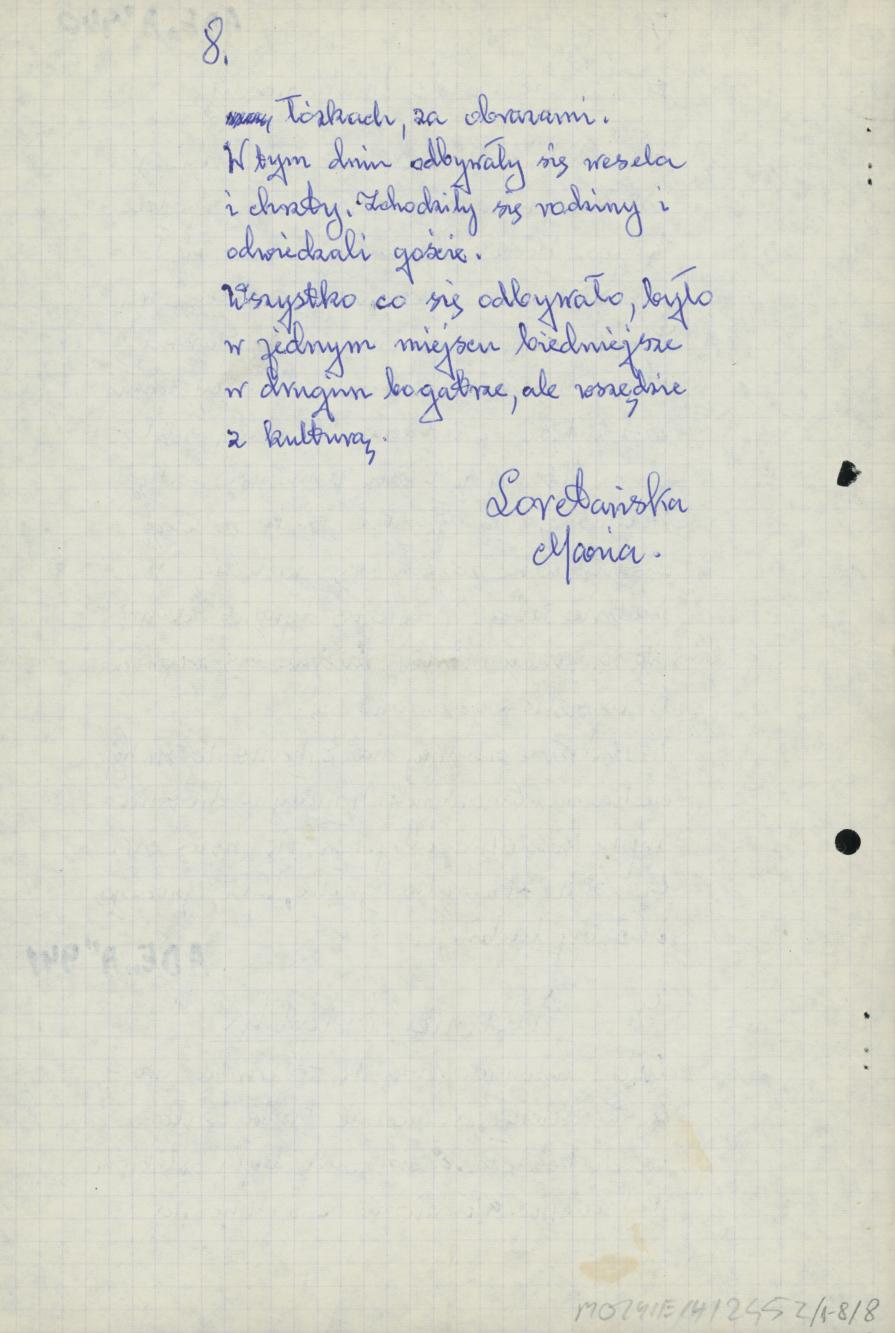 8.
łóżkach, za obrazami.
W tym dniu odbywały się wesela
i chrzty. Zchodziły się rodziny i
odwiedzali goście.
Wszystko co się odbywało, było
w jednym miejscu biedniejsze
w drugim bogatrze, ale wszędzie
z kulturą.
Loretańska
Maria.